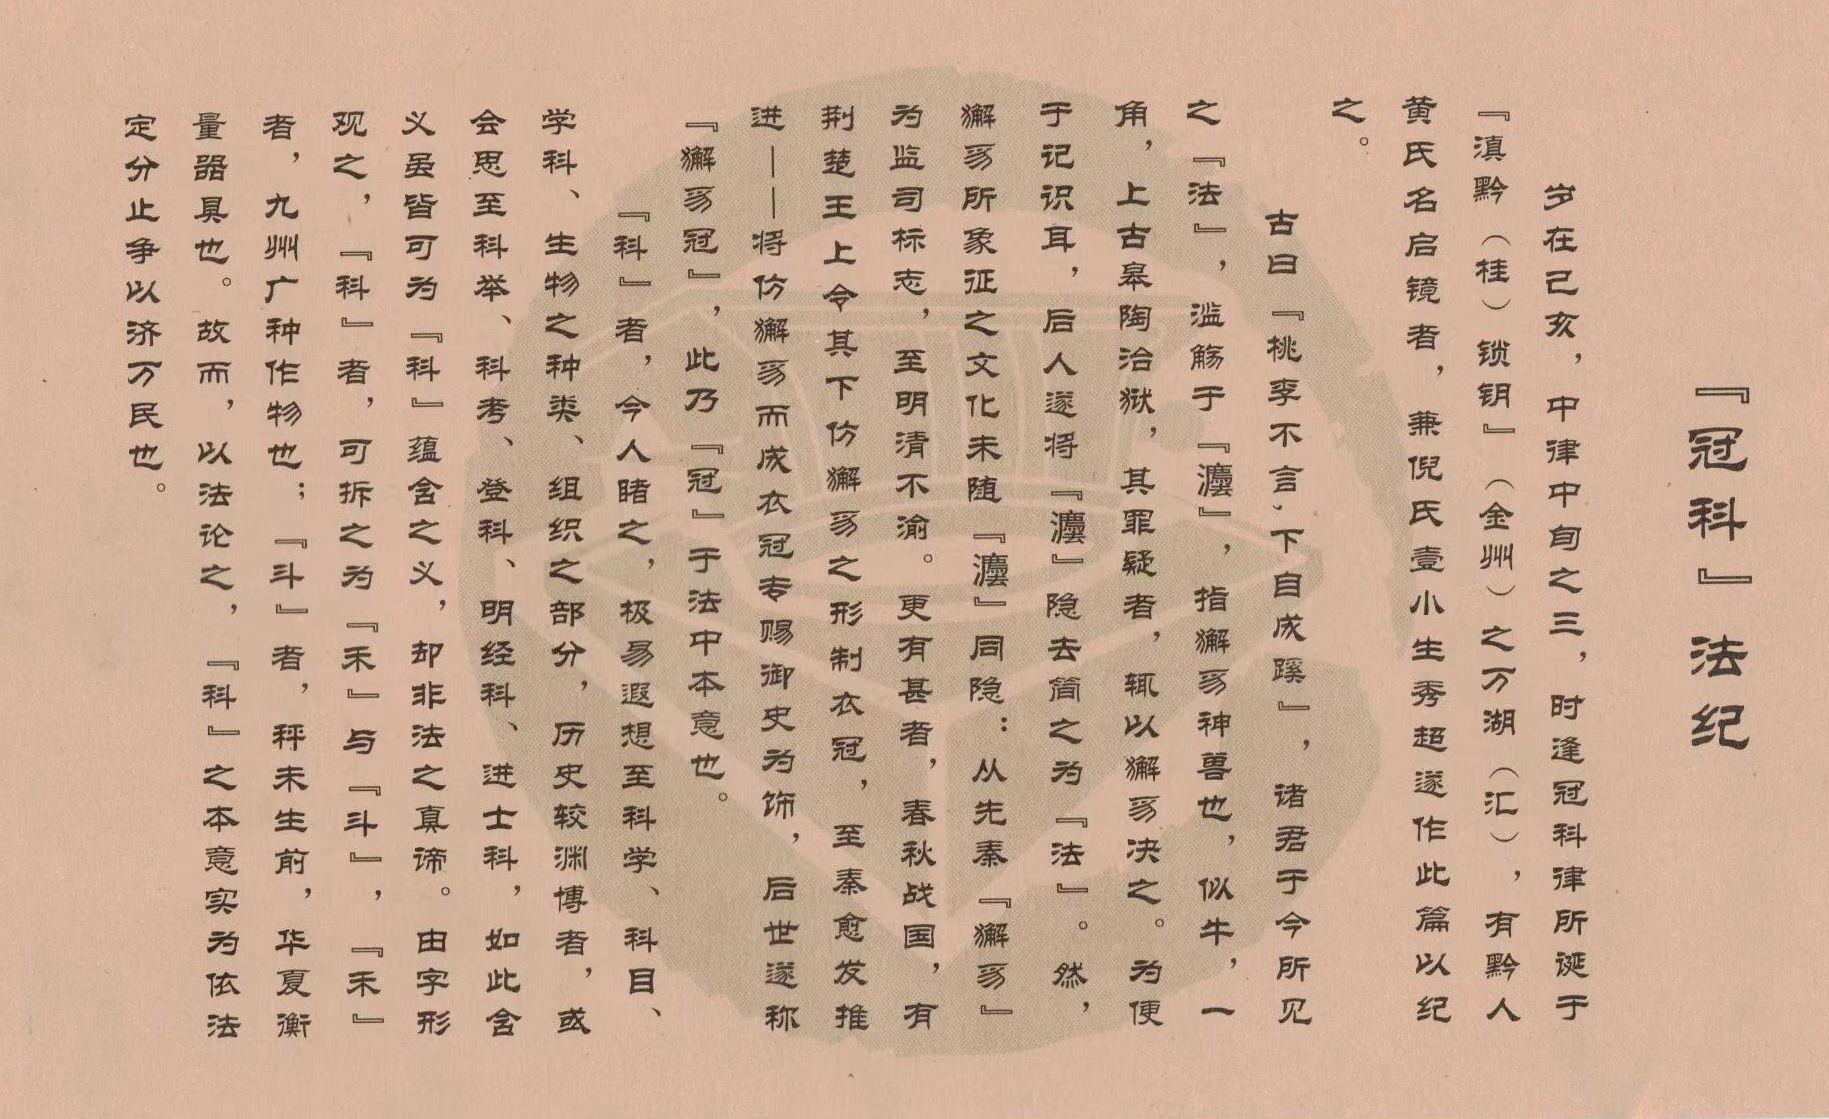 『冠科』法纪
岁在己亥，中律中旬之三，时逢冠科律所诞于
『滇黔（桂）锁钥』（金州）之万湖（汇），有黔人
黄氏名启镜者，兼倪氏壹小生秀超遂作此篇以纪
之。
古曰『桃李不言，下自成蹊』，诸君于今所见
之『法』，滥觞于『灋』，指獬豸神兽也，似牛，一
角，上古皋陶治狱，其罪疑者，辄以獬豸决之。为便
于记识耳，后人遂将『灋』隐去简之为『法』。然，
獬豸所象征之文化未随『灋』同隐：从先秦『獬豸』
为监司标志，至明清不渝。更有甚者，春秋战国，有
荆楚王上令其下仿獬豸之形制衣冠，至秦愈发推
进——将仿獬豸而成衣冠专赐御史为饰，后世遂称
『獬豸冠』，此乃『冠』于法中本意也。
『科』者，今人睹之，极易遐想至科学、科目、
学科、生物之种类、组织之部分，历史较渊博者，或
会思至科举、科考、登科、明经科、进士科，如此含
义虽皆可为『科』蕴含之义，却非法之真谛。由字形
观之，『科』者，可拆之为『禾』与『斗』，『禾』
者，九州广种作物也；『斗』者，秤未生前，华夏衡
量器具也。故而，以法论之，『科』之本意实为依法
定分止争以济万民也。